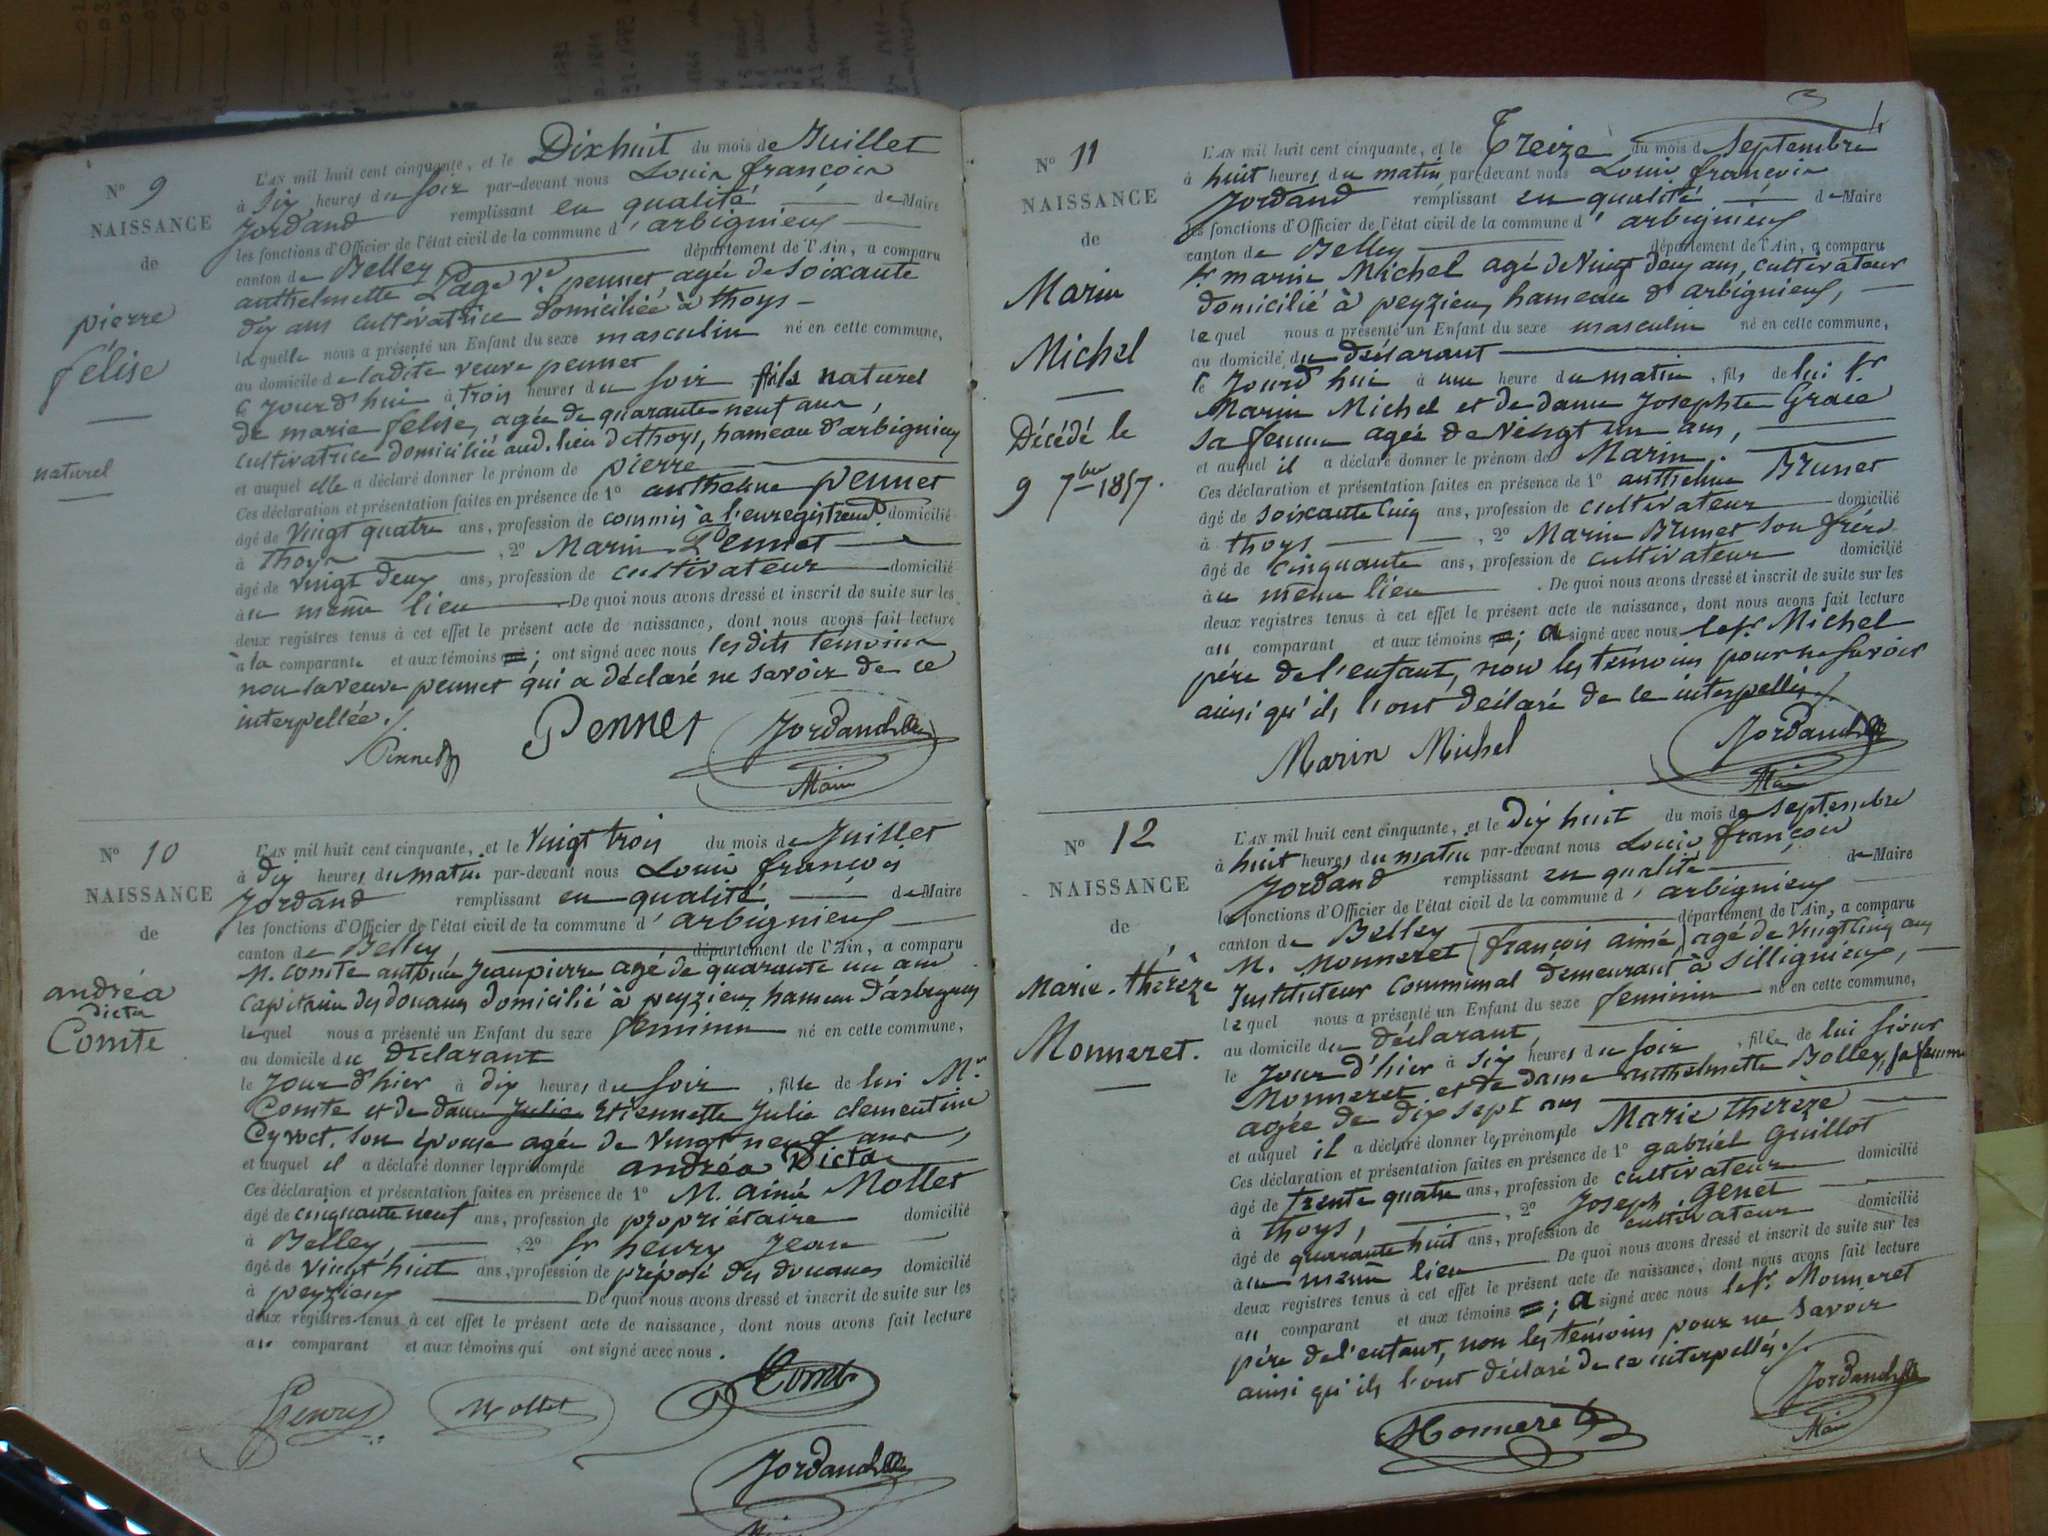 N° 9
NAISSANCE
de
pierre
félise
naturel
L'AN mil huit cent cinquante, et le Dixhuit du mois de Juillet
à six heures du soir par-devant nous Louis françois
Jordand remplissant en qualité de Maire
les fonctions d'Officier de l'état civil de la commune d'arbignieux
canton de Belley département de l'Ain, a comparu
anthelmette Page Ve pennet, agée de soixante
dix ans cultivatrice domiciliée à thoys
laquelle nous a présenté un Enfant du sexe masculin né en cette commune,
au domicile de ladite veuve pennet
cejourd'hui à trois heures du soir fils naturel
de marie félise, agée de quarante neuf ans,
cultivatrice domiciliée aud. lieu de thoys, hameau d'arbignieux
et auquel elle a déclaré donner le prénom de pierre
Ces déclaration et présentation faites en présence de 1° anthelme pennet
âgé de vingt quatre ans, profession de commis à l'enregistremt. domicilié
à thoys , 2° Marin Pennet
âgé de vingt deux ans, profession de cultivateur domicilié
au même lieu De quoi nous avons dressé et inscrit de suite sur les
deux registres tenus à cet effet le présent acte de naissance, dont nous avons fait lecture
à la comparante et aux témoins ; ont signé avec nous lesdits témoins
non la veuve pennet qui a déclaré ne savoir de ce
interpellée./.
Pennet
Pennet
Jordand
Maire
N° 10
NAISSANCE
de
andréa
Dicta
Comte
L'AN mil huit cent cinquante, et le Vingt trois du mois de Juillet
à dix heures du matin par-devant nous Louis françois
Jordand remplissant en qualité de Maire
les fonctions d'Officier de l'état civil de la commune d'arbignieux
canton de Belley département de l'Ain, a comparu
M. Comte antoine Jeanpierre agé de quarante un ans
capitaine des douanes domicilié à peyzieux hameau d'arbignieux
lequel nous a présenté un Enfant du sexe féminin né en cette commune,
au domicile du déclarant
le jour d'hier à dix heures du soir , fille de lui Mr
Comte et de dame Julie Etiennette Julie clementine
son épouse agée de vingt neuf ans,
et auquel il a déclaré donner les prénoms de andréa Dicta
Ces déclaration et présentation faites en présence de 1° M. aimé Mollet
âgé de cinquante neuf ans, profession de propriétaire domicilié
à Belley, , 2° Sr henry Jean
âgé de vingt huit ans, profession de préposé des douanes domicilié
à peyzieux De quoi nous avons dressé et inscrit de suite sur les
deux registres tenus à cet effet le présent acte de naissance, dont nous avons fait lecture
au comparant et aux témoins qui ont signé avec nous.
henry
Mollet
Comte
Jordand
Maire
N° 11
NAISSANCE
de
Marin
Michel
Décédé le
9 7bre 1857.
L'AN mil huit cent cinquante, et le Treize du mois de Septembre
à huit heures du matin par-devant nous Louis françois
Jordand remplissant en qualité de Maire
les fonctions d'Officier de l'état civil de la commune d'arbignieux
canton de Belley département de l'Ain, a comparu
Sr. marin Michel agé de Vingt deux ans, cultivateur
domicilié à peyzieux hameau d'arbignieux,
lequel nous a présenté un Enfant du sexe masculin né en cette commune,
au domicile du déclarant
ce jourd'hui à une heure du matin , fils de lui Sr.
Marin Michel et de dame Josephte Grace
sa femme agée de Vingt un ans,
et auquel il a déclaré donner le prénom de Marin.
Ces déclaration et présentation faites en présence de 1° anthelme Brunet
âgé de soixante cinq ans, profession de cultivateur domicilié
à thoys , 2° Marin Brunet son frère
âgé de cinquante ans, profession de cultivateur domicilié
au même lieu . De quoi nous avons dressé et inscrit de suite sur les
deux registres tenus à cet effet le présent acte de naissance, dont nous avons fait lecture
au comparant et aux témoins ; a signé avec nous le Sr. Michel
père de l'enfant, non les témoins pour ne savoir
ainsi qu'ils l'ont déclaré de ce interpellés./.
Marin Michel
Jordand
Maire
N° 12
NAISSANCE
de
Marie-thérèze
Monneret.
L'AN mil huit cent cinquante, et le Dix huit du mois de Septembre
à huit heures du matin par-devant nous Louis françois
Jordand remplissant en qualité de Maire
les fonctions d'Officier de l'état civil de la commune d'arbignieux
canton de Belley département de l'Ain, a comparu
M. Monneret (françois aimé) agé de vingt cinq ans
Instituteur Communal demeurant à Sillignieux,
lequel nous a présenté un Enfant du sexe féminin né en cette commune,
au domicile du déclarant,
le jour d'hier à six heures du soir , fille de lui Sieur
Monneret et de dame anthelmette Bolley, sa femme
agée de dix sept ans
et auquel il a déclaré donner les prénoms de Marie thérèze
Ces déclaration et présentation faites en présence de 1° gabriel Guillot
âgé de trente quatre ans, profession de cultivateur domicilié
à thoys, , 2° Joseph Genet
âgé de quarante huit ans, profession de cultivateur domicilié
au même lieu De quoi nous avons dressé et inscrit de suite sur les
deux registres tenus à cet effet le présent acte de naissance, dont nous avons fait lecture
au comparant et aux témoins ; a signé avec nous le Sr. Monneret
père de l'enfant, non les témoins pour ne savoir
ainsi qu'ils l'ont déclaré de ce interpellés./.
Monneret
Jordand
Maire